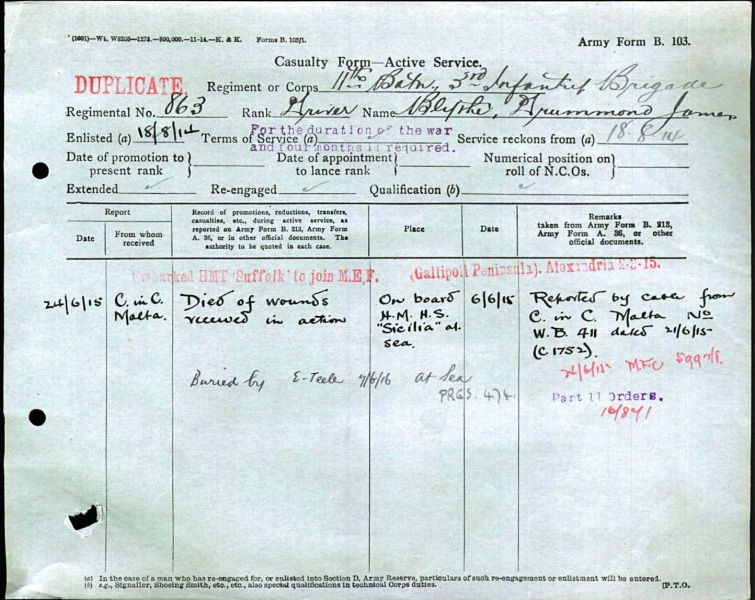 (1901)—Wt. W8203—1272.—800,000.—11-14.—K. & K. Forms B. 103/1. Army Form B. 103.
Casualty Form—Active Service.
DUPLICATE. Regiment or Corps 11th Batn, 3rd Infantry Brigade
Regimental No. 863 Rank Driver Name Blythe, Drummond James
Enlisted (a) 18/8/14 Terms of Service (a) For the duration of the war and four months if required. Service reckons from (a) 18.8.14
Date of promotion to present rank } Date of appointment to lance rank } Numerical position on roll of N.C.Os. }
Extended Re-engaged Qualification (b)
Report
Date
From whom received
Record of promotions, reductions, transfers, casualties, etc., during active service, as reported on Army Form B. 213, Army Form A. 36, or in other official documents. The authority to be quoted in each case.
Place
Date
Remarks taken from Army Form B. 213, Army Form A. 36, or other official documents.
Embarked HMT 'Suffolk' to join M.E.F. (Gallipoli Peninsula). Alexandria 2-3-15.
24/6/15 C. in C. Died of wounds On board 6/6/15 Reported by cable from
Malta. received in action H.M.H.S. C. in C. Malta No
"Sicilia" at W.B. 411 dated 21/6/15
sea. (C1752).
24/6/15 MFC 5997/8.
Buried by E-Teele 7/6/16 at Sea
PRGS. 474.
Part 11 Orders.
16/871
(a) In the case of a man who has re-engaged for, or enlisted into Section D, Army Reserve, particulars of such re-engagement or enlistment will be entered.
(b) e.g., Signaller, Shoeing Smith, etc., etc., also special qualifications in technical Corps duties. [P.T.O.